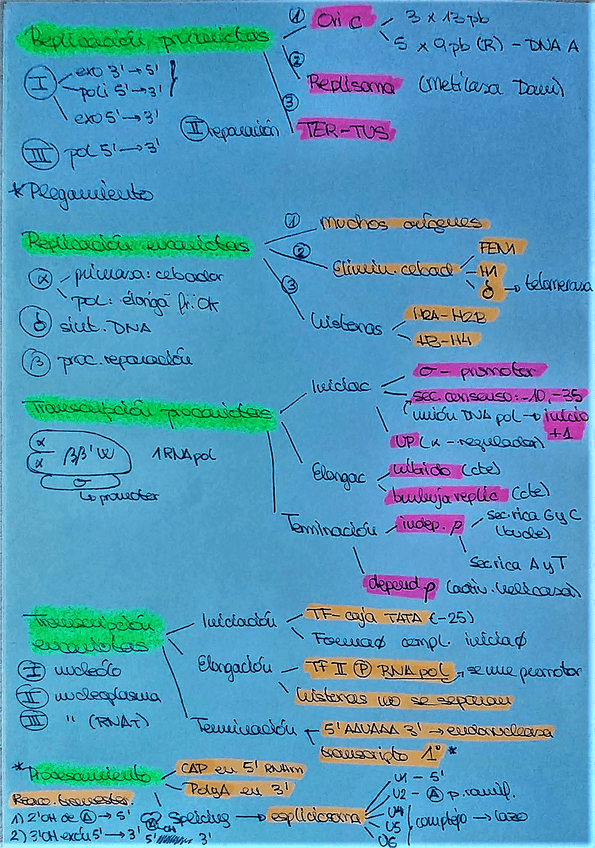 Replicación procariotas
① Ori C
3 x 13 pb
5 x 9pb (R) - DNA A
② Replisoma (Metilasa Dam)
③ TER-TUS
Ⅰ exo 3' → 5'
poli 5' → 3'
exo 5' → 3'
Ⅱ reparación
Ⅲ pol 5' → 3'
* Plegamiento
Replicación eucariotas
① Muchos orígenes
② Elimin. cebad
FEN1
H1
δ → telomerasa
③ Histonas
H2A-H2B
H3-H4
α primasa: cebador
pol: elonga fr. OK
δ sint. DNA
β proc. reparación
Transcripción procariotas
α α β β' W
σ
↳ promotor
1 RNA pol
Iniciac
σ - promotor
sec. consenso: -10, -35
unión DNA pol → inicio +1
UP (α - regulador)
Elongac
híbrido (cte)
burbuja replic (cte)
Terminación
indep. ρ
sec. rica G y C
(bucle)
sec. rica A y T
depend ρ (activ. helicasa)
Transcripción eucariotas
Ⅰ nucleólo
Ⅱ nucleoplasma
Ⅲ " (RNAT)
Iniciación
TF - caja TATA (-25)
Formaø compl. iniciaø
Elongación
TF II Ⓟ RNA pol → se une promotor
Histonas no se separan
Terminación
5' AAUAAA 3' → endonucleasa
transcripto 1º *
* Procesamiento
CAP en 5' RNAm
PolyA en 3'
Splicing → espliciosoma
U1 - 5'
U2 - Ⓐ p. ramif.
U4
U5
U6
complejo → lazo
Reacc. transester.
1) 2'OH de Ⓐ → 5'
2) 3'OH exón 5' → 3'
5' OH 3'